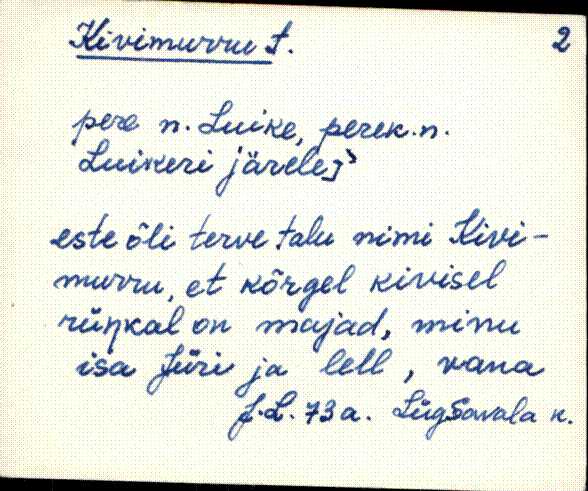 Kivimurru t. 2
pere n. Luike, perek.n.
Luikeri järele]
este õli terve talu nimi Kivi-
murru, et kõrgel kivisel
rüŋkal on majad, minu
isa Jüri ja lell, vana
J.L. 73 a. LügSavala k.